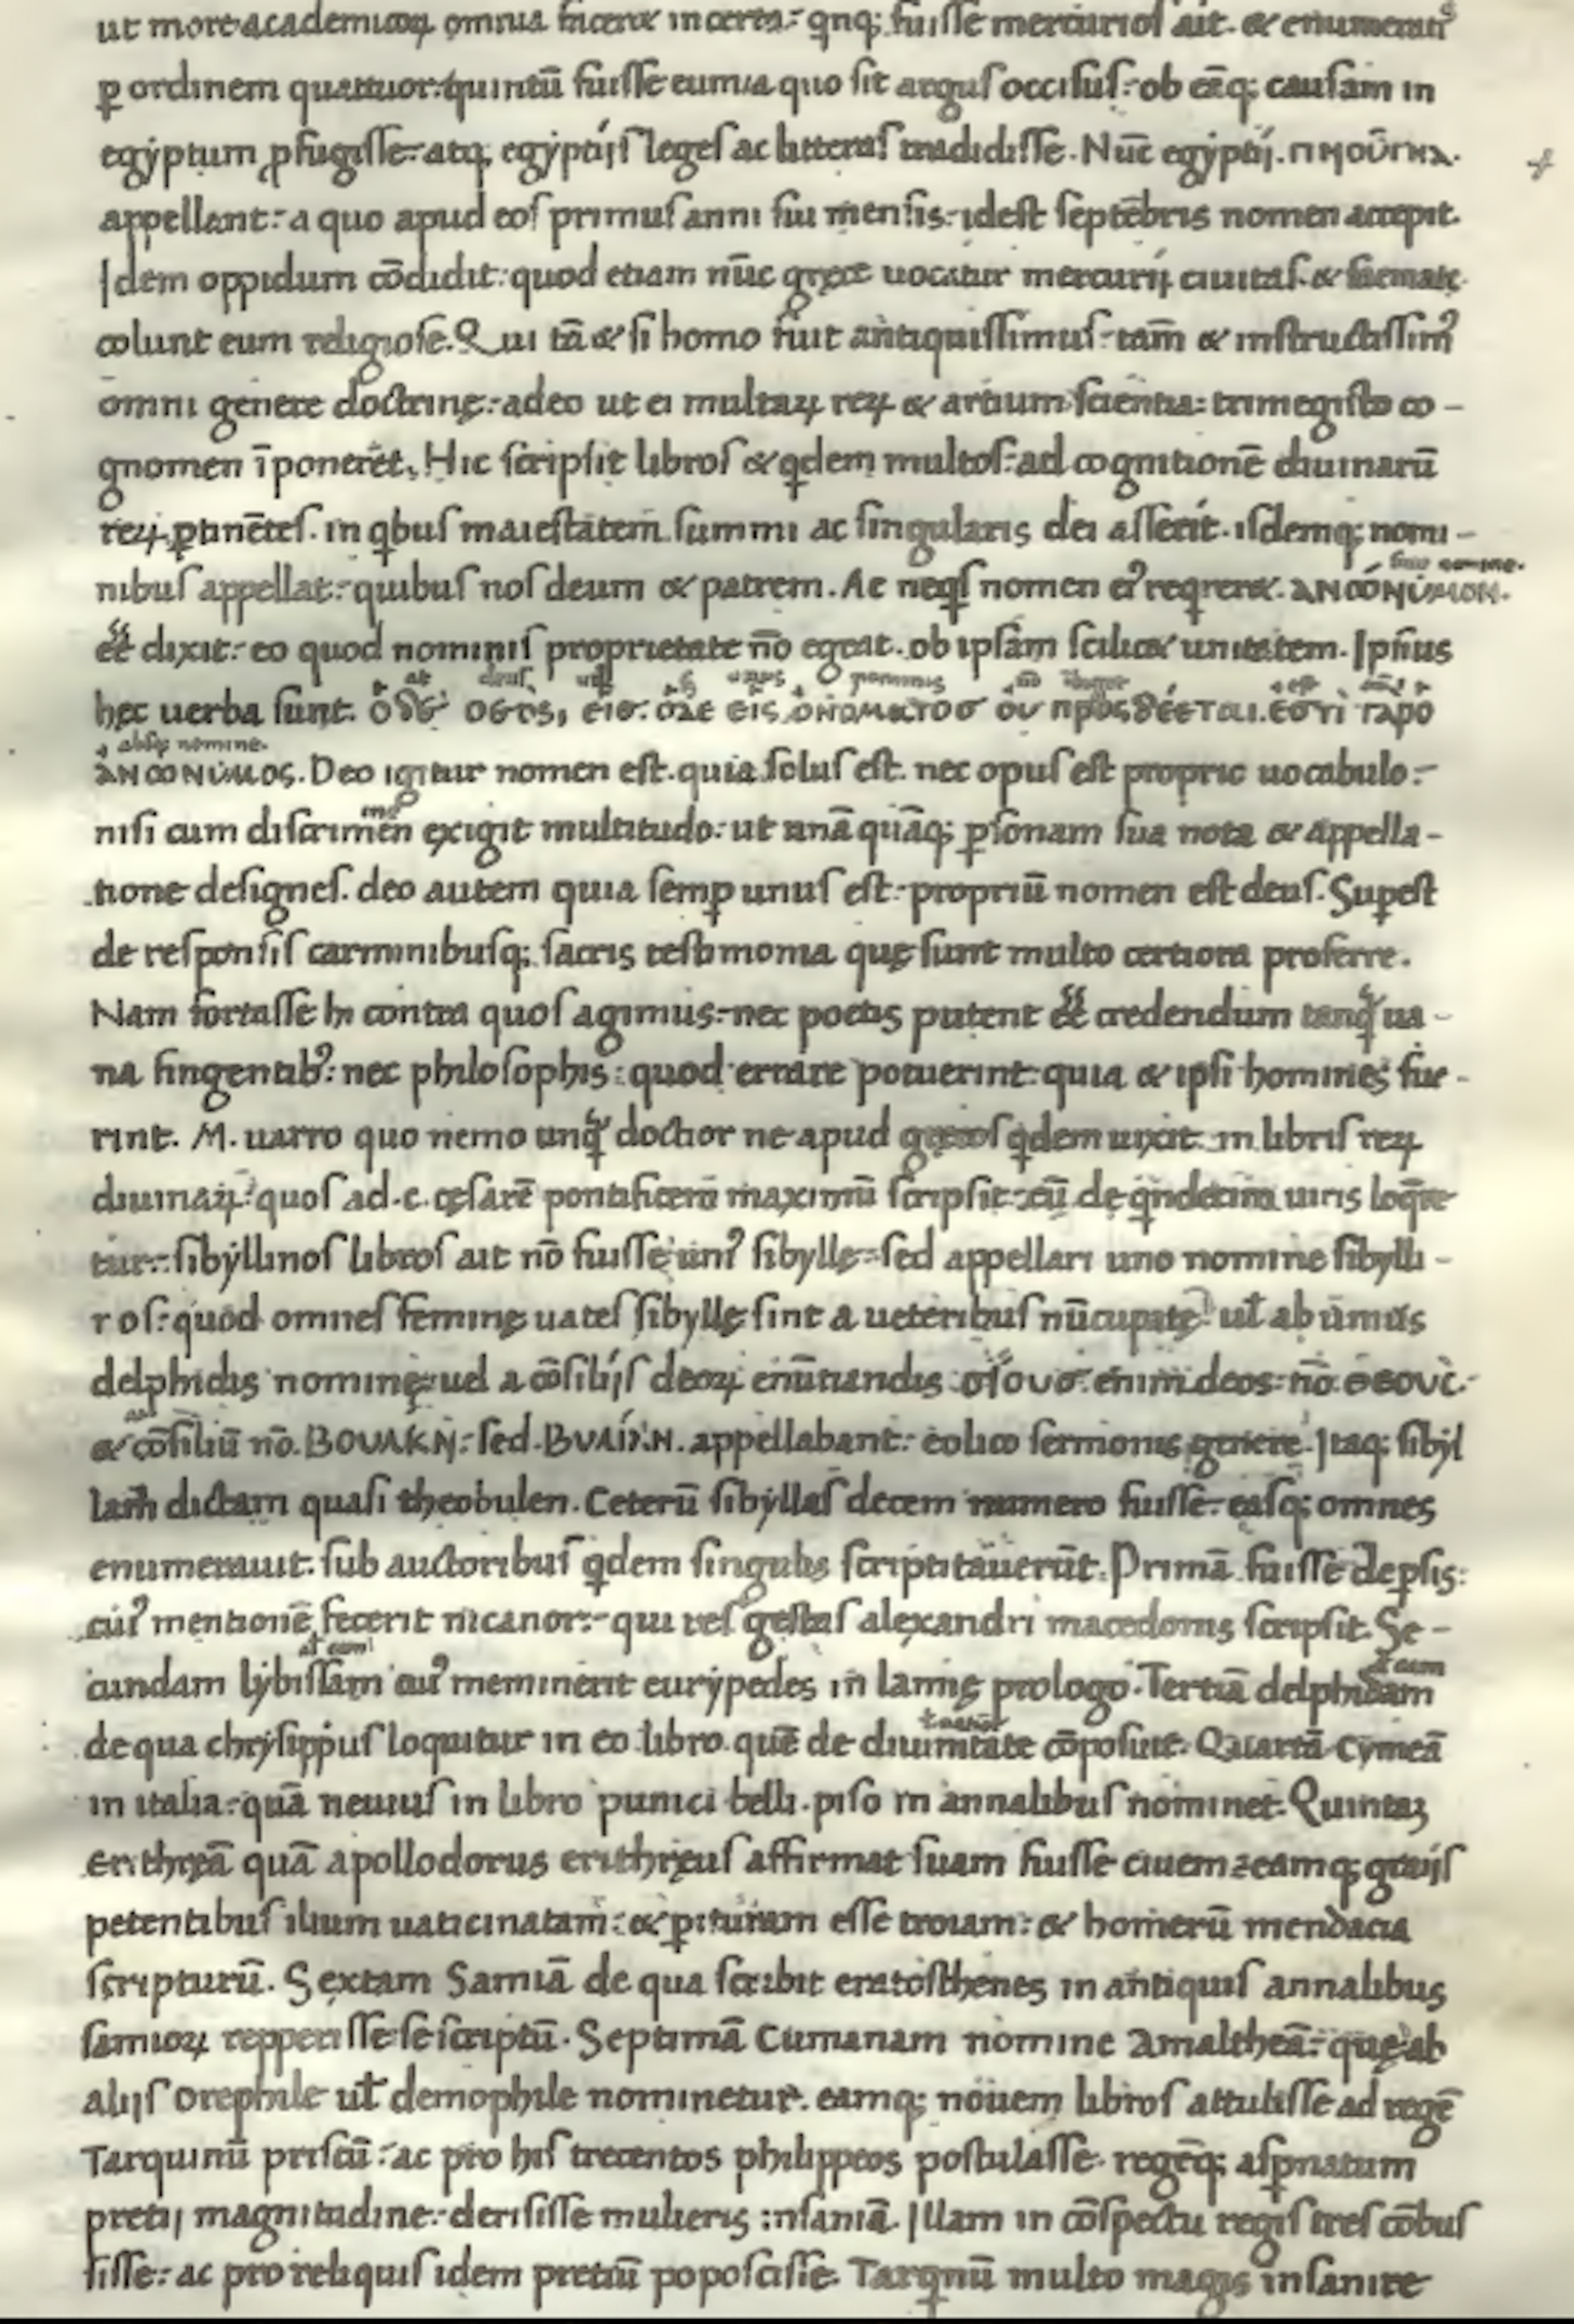 ut more academicoꝝ omnia faceret incerta: qnq; fuisse mercurios ait. & enumeratis
ꝑ ordinem quattuor: quintū fuisse eum a quo sit argus occisus: ob eāq; causam in
egyptum ꝓfugisse: atq; egyptijs leges ac litteras tradidisse. Nūc egyptij.
appellant: a quo apud eos primus anni sui mensis: idest septēbris nomen accepit.
Idem oppidum cōdidit: quod etiam nūc gręce uocatur mercurij ciuitas. &
colunt eum religiose. Qui tā & si homo fuit antiquissimus: tam̄ & instructissim᾿
omni genere doctrinę: adeo ut ei multaꝝ reꝝ & artium scientia: trimegisto co-
gnomen īponeret. Hic scripsit libros & qdem multos: ad cognitionē diuinarū
reꝝ ꝑtinētes. in qbus maiestatem summi ac singularis dei asserit. isdemq; nomi-
nibus appellat: quibus nos deum & patrem. Ac neqs nomen ei᾿ reqreret. ΑΝώΝύΜΟΝ. sine nomine.
eē dixit: eo quod nominis proprietate nō egeat. ob ipsam scilicet unitatem. Ipsius
hęc uerba sunt.
absq nomine.
ΑΝωΝύΜΟС. Deo igitur nomen est. quia solus est. nec opus est proprio uocabulo:
nisi cum discrimen exigit multitudo: ut unāquāq; ꝑsonam sua nota & appella-
tione designes. deo autem quia semꝑ unus est: propriū nomen est deus. Suꝑest
de responsis carminibusq; sacris testimonia quę sunt multo certiora proferre.
Nam fortasse hi contra quos agimus: nec poetis putent eē credendum tanq̄ ua-
na fingentib᾿: nec philosophis: quod errare potuerint: quia & ipsi homines fue-
rint. M. uarro quo nemo unq̄ doctior ne apud gręcos qdem uixit. in libris reꝝ
diuinaꝝ: quos ad .c. cęsarē pontificem maximū scripsit: cū de qndecim uiris loqre-
tur: sibyllinos libros ait nō fuisse uni᾿ sibyllę: sed appellari uno nomine sibylli-
ros: quod omnes feminę uates sibyllę sint a ueteribus nūcupatę ul̄ ab unius
delphidis nominę: uel a cōsilijs deoꝝ enūtiandis σΙΟΥσ. enim deos: nō θεουс.
& cōsiliū nō. appellabant: eolico sermonis genere. Itaq; sibyl
lam dictam quasi theobulen. Ceterū sibyllas decem numero fuisse: easq; omnes
enumerauit: sub auctoribus qdem singulis scriptitauerūt. Primā fuisse de ꝑsis:
cui᾿ mentionē fecerit nicanor: qui res gestas alexandri macedonis scripsit. Se-
cundam lybissam cui᾿ meminerit eurypedes in lamię prologo. Tertiā delphidam
de qua chrysippus loquitur in eo libro quē de diuinitate cōposuit. Quartā Cymeā
in italia: quā neuius in libro punici belli. piso in annalibus nominet. Quintaꝫ
erithręā quā apollodorus erithręus affirmat suam fuisse ciuem: eamq; graijs
petentibus ilium uaticinatam: & ꝑituram esse troiam: & homerū mendacia
scripturū. Sextam Samiā de qua scribit eratosthenes in antiquis annalibus
samioꝝ repperisse se scriptū. Septimā Cumanam nomine Amaltheā: quę ab
alijs Orephile ul̄ demophile nominetur. eamq; nouem libros attulisse ad regē
Tarquinū priscū: ac pro his trecentos philippeos postulasse. regēq; asꝑnatum
pretij magnitudine: derisisse mulieris insaniā. Illam in cōspectu regis tres cōbus
sisse: ac pro reliquis idem pretiū poposcisse. Tarqnū multo magis insanire